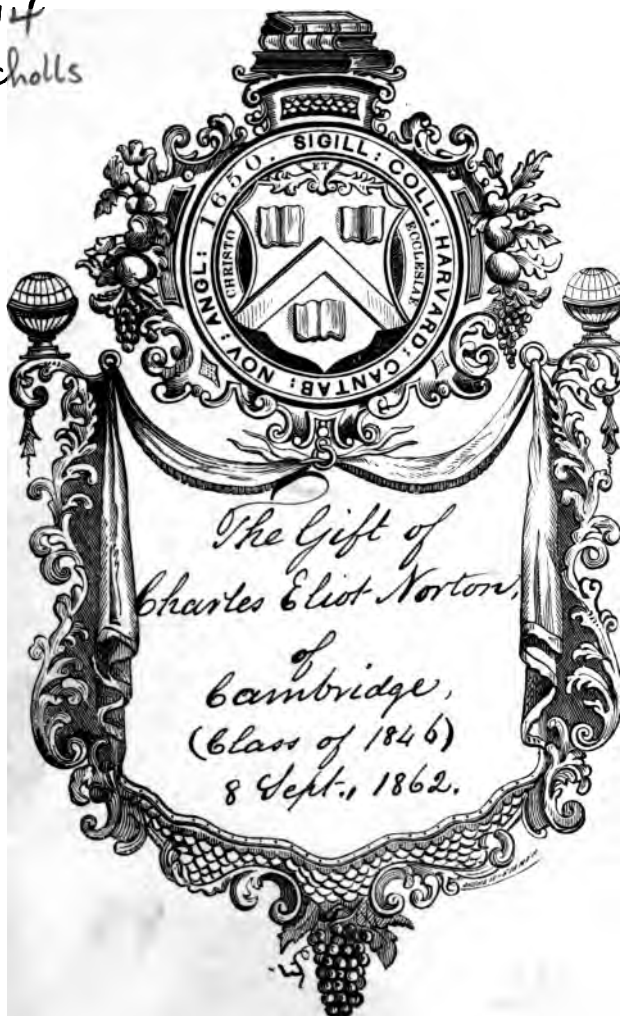 14
cholls
SIGILL: COLL: HARVARD: CANTAB: NOV: ANGL: 1650.
ET
CHRISTO
ECCLESIAE
The Gift of
Charles Eliot Norton,
of
Cambridge,
(Class of 1846)
8 Sept., 1862.